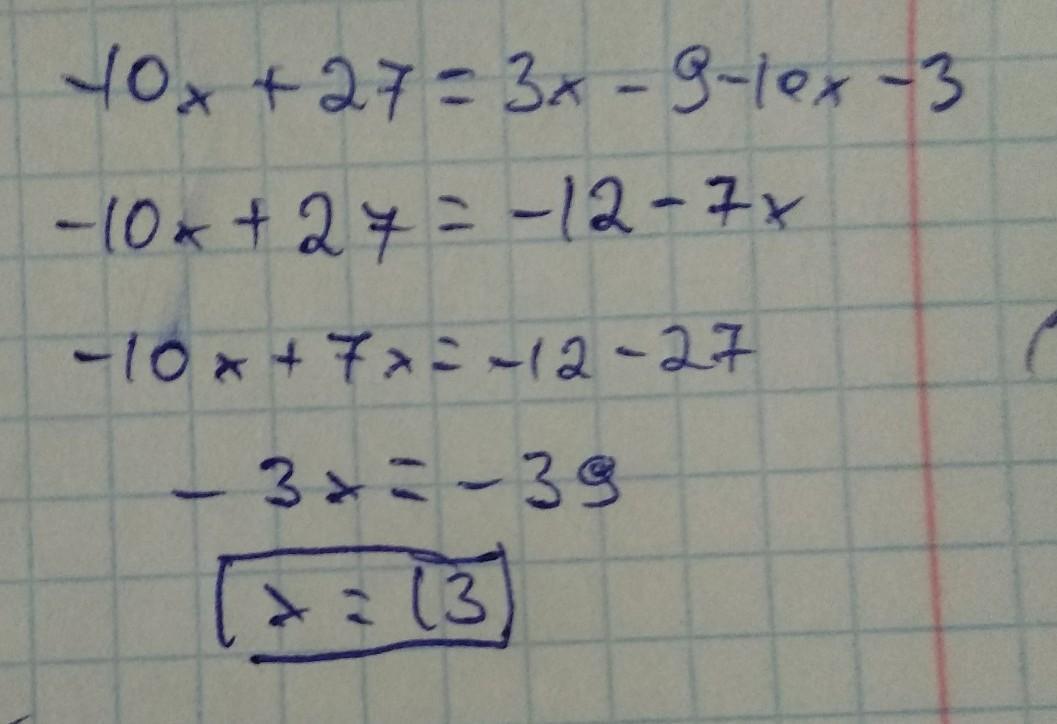 -10x + 27 = 3x - 9 - 10x - 3
-10x + 27 = -12 - 7x
-10x + 7x = -12 - 27
- 3x = - 39
x = 13